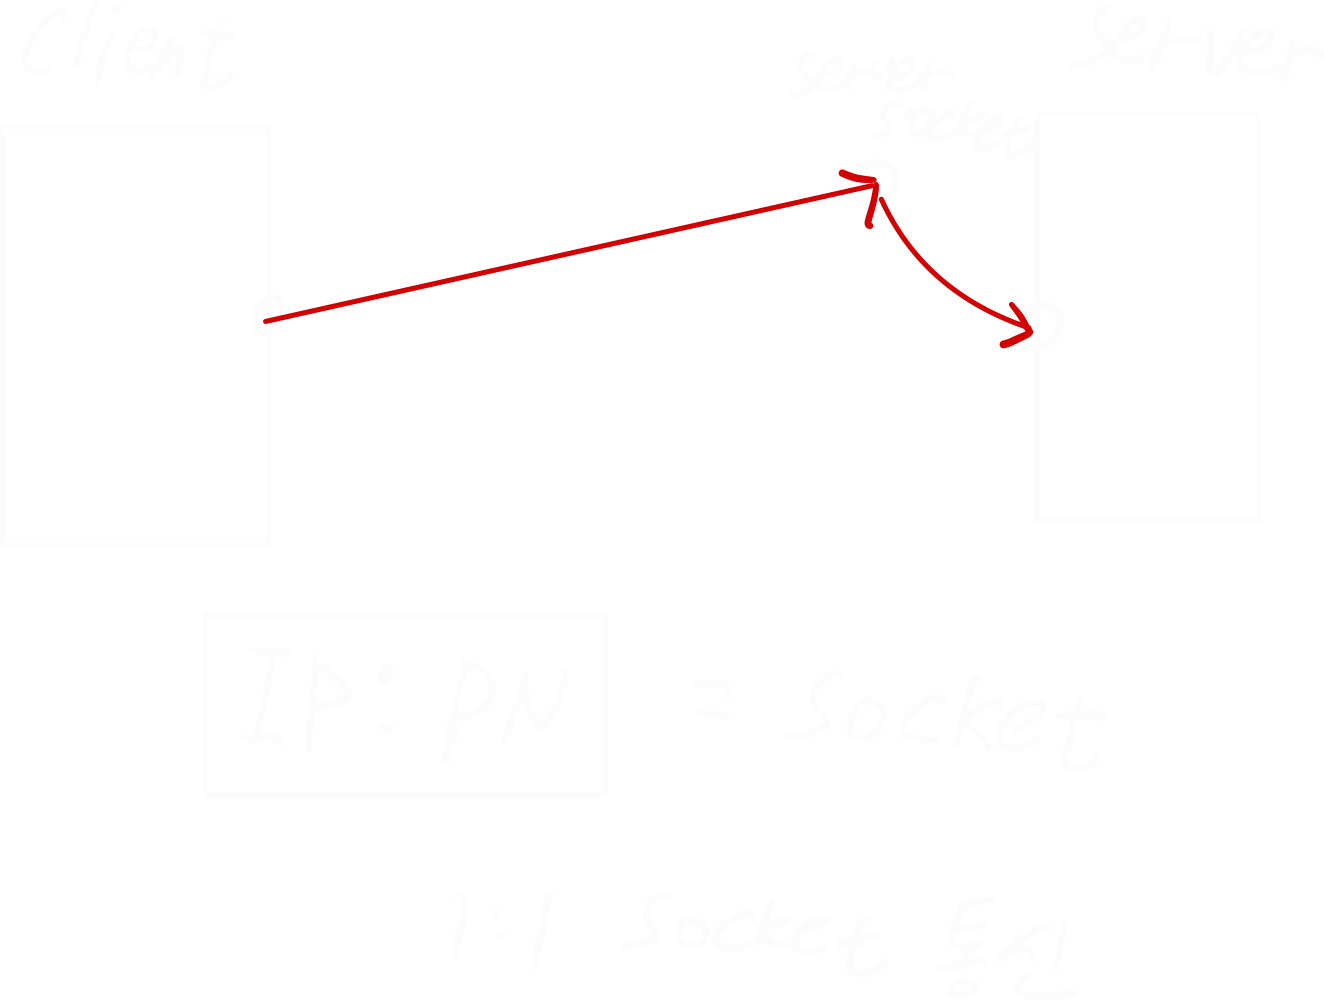 Client
Server
server
socket
IP : PN = Socket
1:1 Socket 통신